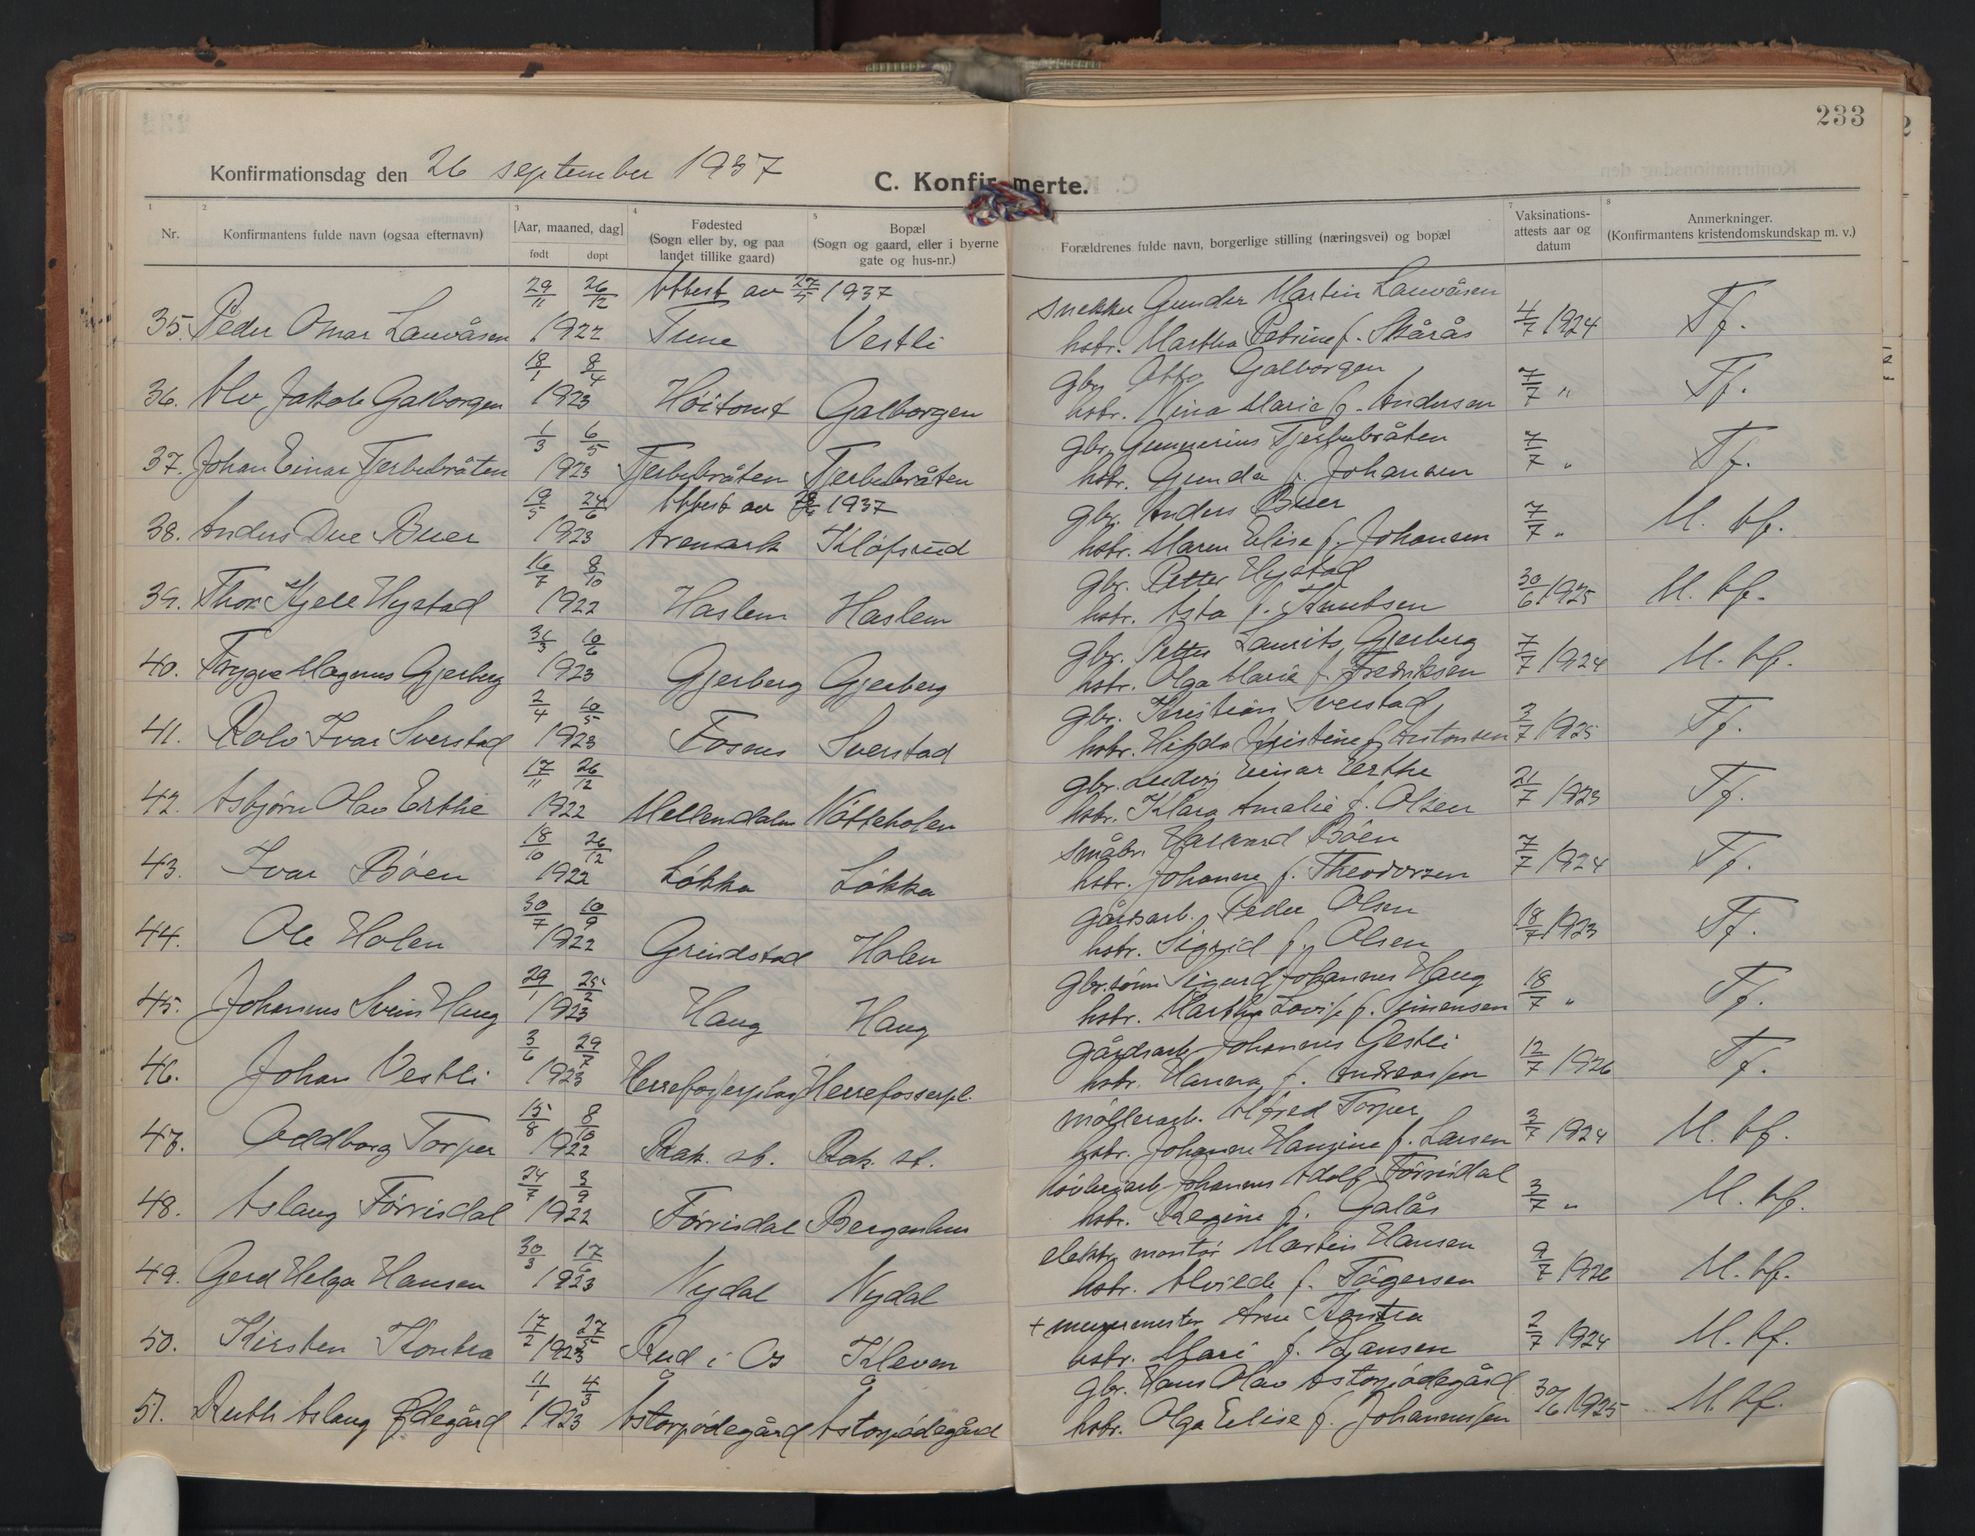 233
Konfirmationsdag den 26 september 1937
C. Konfirmerte.
1 2 3 4 5 7 8
Nr. Konfirmantens fulde navn (ogsaa efternavn) [Aar, maaned, dag] født døpt Fødested (Sogn eller by, og paa landet tillike gaard) Bopæl (Sogn og gaard, eller i byerne gate og hus-nr.) Forældrenes fulde navn, borgerlige stilling (næringsvei) og bopæl Vaksinations-attests aar og datum Anmerkninger. (Konfirmantens kristendomskundskap m. v.)
29/11 26/12 Attest av 27/5 1937 snekker Gunder Martin Lauvåsen
35. Peder Omar Lauvåsen 1922 Tune Vestli hstr. Martha Petrine f. Skårås 4/7 1924 Tf.
18/1 8/4 gbr. Otto Galborgen
36. Alv Jakob Galborgen 1923 Høitomt Galborgen hstr. Nina Marie f. Andersen 7/7 " Tf.
1/3 6/5 gbr. Gunnerius Tjerbubråten
37. Johan Einar Tjerbubråten 1923 Tjerbubråten Tjerbubråten hstr. Gunda f. Johansen 7/7 " Tf.
19/5 24/6 Attest av 1937 gbr. Anders Buer
38. Anders Due Buer 1923 Aremark Kløfsrud hstr. Maren Elise f. Johansen 7/7 " M. tf.
16/7 8/10 gbr. Petter Hystad
39. Thor Kjell Hystad 1922 Haslem Haslem hstr. Asta f. Knutsen 30/6 1925 M. tf.
31/3 10/6 gbr. Petter Laurits Gjerberg
40. Trygve Magnus Gjerberg 1923 Gjerberg Gjerberg hstr. Olga Marie f. Fredriksen 7/7 1924 M. tf.
2/4 10/5 gbr. Kristian Sverstad
41. Rolv Ivar Sverstad 1923 Fosens Sverstad hstr. Hilda Kristine f. Antonsen 3/7 1925 Tf.
17/11 26/12 gbr. Ludvig Einar Erthe
42. Asbjørn Olav Erthe 1922 Mellendalen Nötteholen hstr. Klara Amalie f. Olsen 21/7 1923 Tf.
18/10 26/12 småbr. Halvard Böen
43. Ivar Böen 1922 Løkka Løkka hstr. Johanne f. Theodorsen 7/7 1924 Tf.
30/7 10/9 gårdsarb. Peder Olsen
44. Ole Holen 1922 Grindstad Holen hstr. Sigrid f. Olsen 18/7 1923 Tf.
29/1 25/2 gbr.sønn Sigurd Johannes Haug
45. Johannes Svein Haug 1923 Haug Haug hstr. Martha Lovise f. Simensen 18/7 " Tf.
3/6 29/7 gårdsarb. Johannes Gestli
46. Johan Vestli 1923 Herrefosserplass Herrefosserpl. hstr. Hanna f. Andreassen 12/7 1926 Tf.
15/8 8/10 møllerarb. Alfred Torper
47. Oddborg Torper 1922 Rak. st. Rak. st. hstr. Johanne Hansine f. Larsen 3/7 1924 M. tf.
24/7 3/9 høvleriarb. Johannes Adolf Førrisdal
48. Aslaug Førrisdal 1922 Førrisdal Bergenhus hstr. Regine f. Galås 3/7 " M. tf.
30/3 17/6 elektr. montør Martin Hansen
49. Gerd Helga Hansen 1923 Nydal Nydal hstr. Alvilde f. Tågersen 9/7 1926 M. tf.
17/2 27/5 + murermester Arne Kontra
50. Kirsten Kontra 1923 Rud i Os Kleven hstr. Mari f. Hansen 2/7 1924 M. tf.
11/1 4/3 gbr. Hans Olav Åstorpødegård
51. Ruth Aslaug Ødegård 1923 Åstorpødegård Åstorpødegård hstr. Olga Elise f. Johannessen 30/6 1925 M. tf.